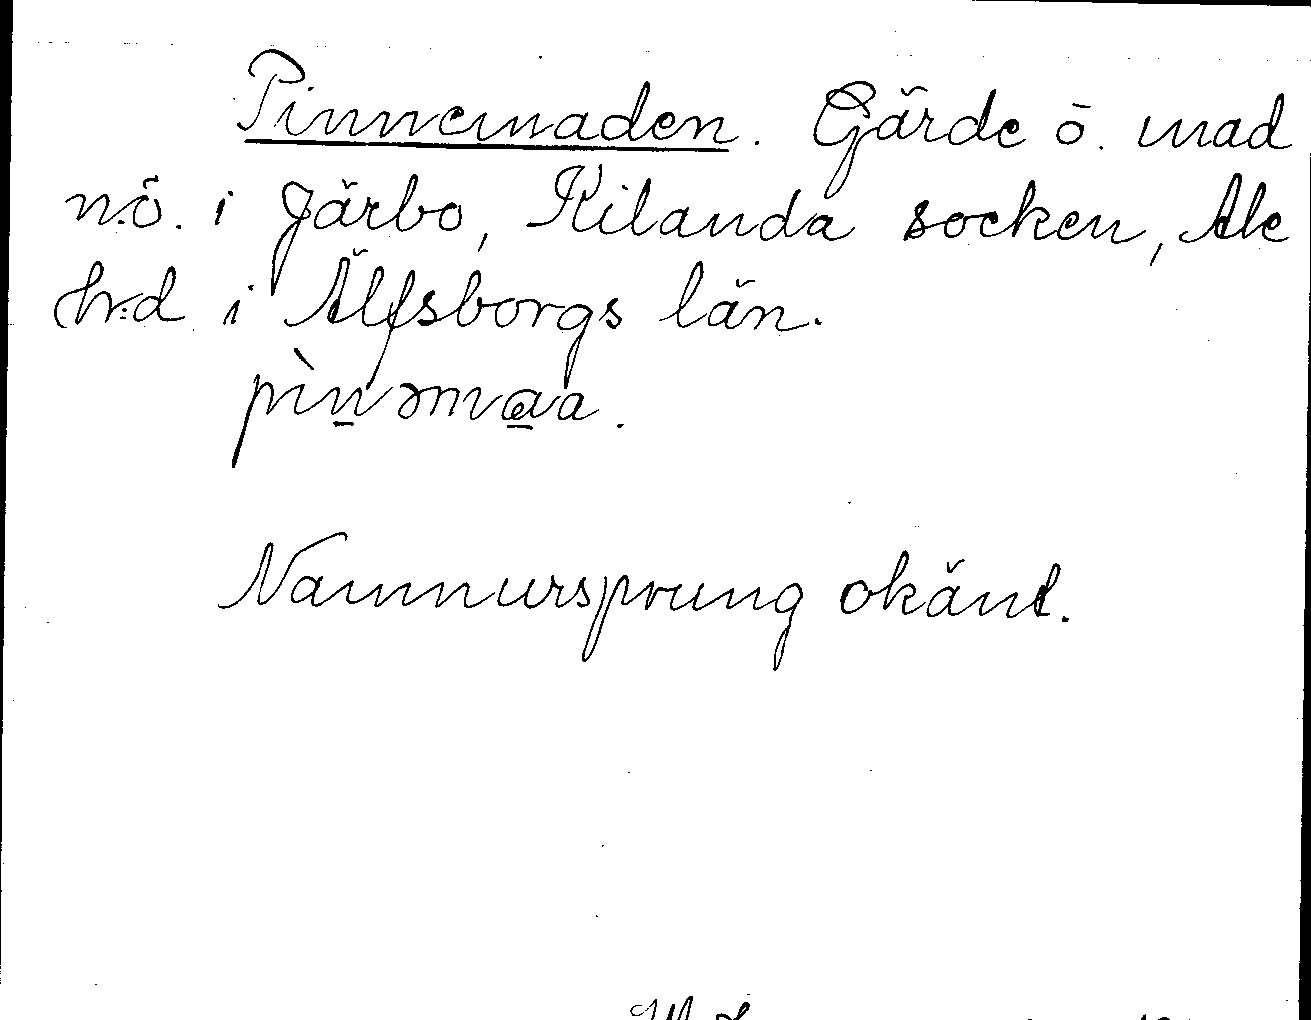 Pinnemaden. Gärde ö. mad
n.ö. i Järbo, Kilanda socken, Ale
h:d i Älfsborgs län.
pìn̠əma̠a.
Namnursprung okänt.